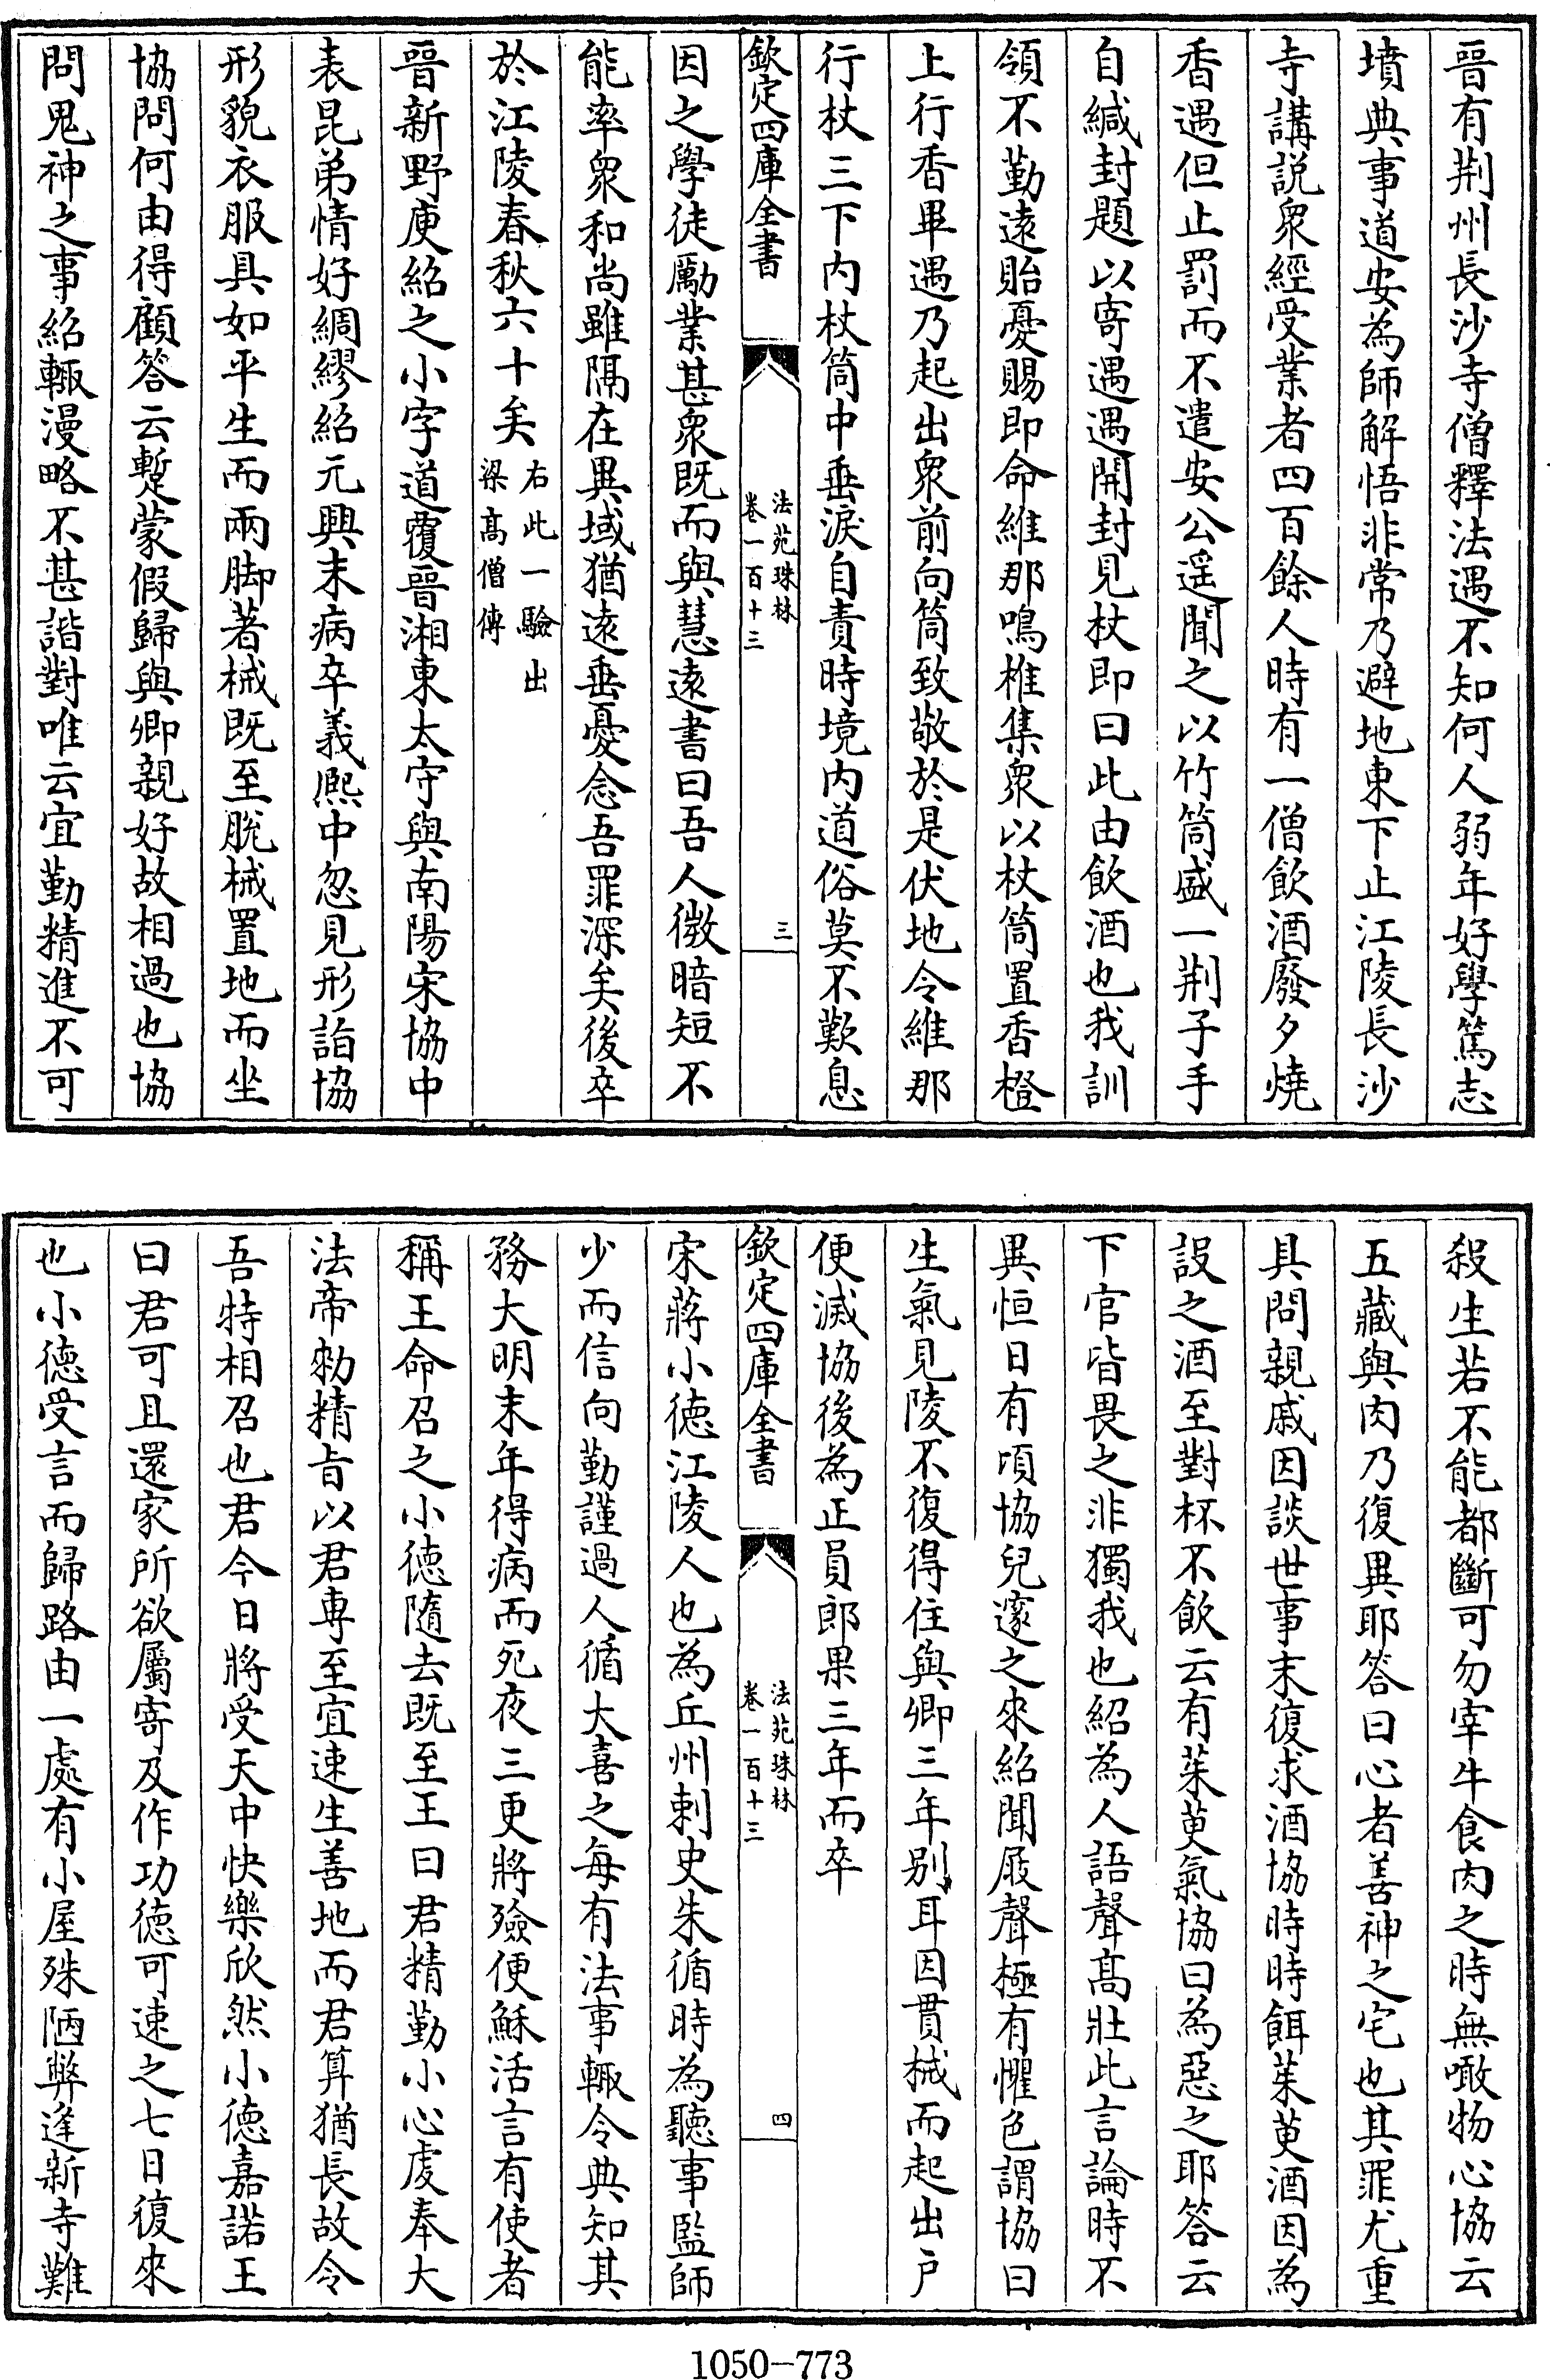 晉有荆州長沙寺僧釋法遇不知何人弱年好學篤志
墳典事道安為師解悟非常乃避地東下止江陵長沙
寺講説衆經受業者四百餘人時有一僧飲酒廢夕燒
香遇但止罰而不遣安公遥聞之以竹筒盛一荆子手
自緘封題以寄遇遇開封見杖即曰此由飲酒也我訓
領不勤逺貽憂賜即命維那鳴椎集衆以杖筒置香橙
上行香畢遇乃起出衆前向筒致敬於是伏地令維那
行杖三下内杖筒中垂淚自責時境内道俗莫不歎息
欽定四庫全書
法苑珠林
卷一百十三
三
因之學徒勵業甚衆既而與慧逺書曰吾人微暗短不
能率衆和尚雖隔在異域猶逺垂憂念吾罪深矣後卒
於江陵春秋六十矣右此一驗出梁高僧傳
晉新野庾紹之小字道覆晉湘東太守與南陽宋協中
表昆弟情好綢繆紹元興末病卒義熙中忽見形詣協
形貌衣服具如平生而兩脚著械既至脱械置地而坐
協問何由得顧答云暫蒙假歸與卿親好故相過也協
問鬼神之事紹輒漫略不甚諧對唯云宜勤精進不可
殺生若不能都斷可勿宰牛食肉之時無噉物心協云
五藏與肉乃復異耶答曰心者善神之宅也其罪尤重
具問親戚因談世事末復求酒協時時餌茱萸酒因為
設之酒至對杯不飲云有茱萸氣協曰為惡之耶答云
下官皆畏之非獨我也紹為人語聲高壯此言論時不
異恒日有頃協兒邃之來紹聞屐聲極有懼色謂協曰
生氣見陵不復得住與卿三年别耳因貫械而起出户
便滅協後為正員郎果三年而卒
欽定四庫全書
法苑珠林
卷一百十三
四
宋蔣小徳江陵人也為丘州刺史朱循時為聽事監師
少而信向勤謹過人循大喜之每有法事輒令典知其
務大明末年得病而死夜三更將殮便穌活言有使者
稱王命召之小徳隨去既至王曰君精勤小心虔奉大
法帝勑精旨以君専至宜速生善地而君算猶長故令
吾特相召也君今日將受天中快樂欣然小徳嘉諾王
曰君可且還家所欲屬寄及作功徳可速之七日復來
也小徳受言而歸路由一處有小屋殊陋弊逢新寺難
1050-773